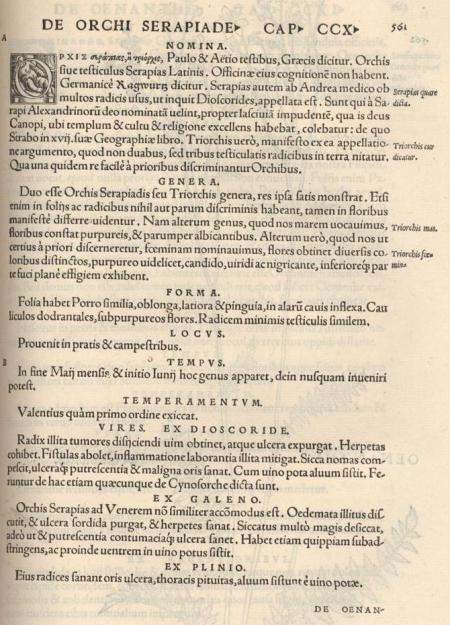 DE ORCHI SERAPIADE▸ CAP▸ CCX▸ 561
A
NOMINA.
ΟΡΧΙΣ σεράπιας, ἢ τριόρχις, Paulo & Aetio testibus, Græcis dicitur. Orchis
siue testiculus Serapias Latinis. Officinæ eius cognitionē non habent.
Germanicè Ragwurtz dicitur. Serapias autem ab Andrea medico ob
multos radicis usus, ut inquit Dioscorides, appellata est. Sunt qui à Sa-
Serapias quare
dicta.
rapi Alexandrinorū deo nominatā uelint, propter lasciuiā impudentē, qua is deus
Canopi, ubi templum & cultu & religione excellens habebat, colebatur: de quo
Strabo in xvij. suæ Geographiæ libro. Triorchis uerò, manifesto ex ea appellatio-
Triorchis cur
dicatur.
ne argumento, quod non duabus, sed tribus testiculatis radicibus in terra nitatur.
Qua una quidem re facilè à prioribus discriminantur Orchibus.
GENERA.
Duo esse Orchis Serapiadis seu Triorchis genera, res ipsa satis monstrat. Etsi
enim in folijs ac radicibus nihil aut parum discriminis habeant, tamen in floribus
manifestè differre uidentur. Nam alterum genus, quod nos marem uocauimus,
Triorchis mas.
floribus constat purpureis, & parum per albicantibus. Alterum uerò, quod nos ut
certius à priori discerneretur, fœminam nominauimus, flores obtinet diuersis co-
Triorchis fœ-
mina.
loribus distinctos, purpureo uidelicet, candido, uiridi ac nigricante, inferioreq́; par
te fuci planè effigiem exhibent.
FORMA.
Folia habet Porro similia, oblonga, latiora & pinguia, in alarū cauis inflexa. Cau
liculos dodrantales, subpurpureos flores. Radicem minimis testiculis similem.
LOCVS.
Prouenit in pratis & campestribus.
TEMPVS.
B
In fine Maij mensis & initio Iunij hoc genus apparet, dein nusquam inueniri
potest.
TEMPERAMENTVM.
Valentius quàm primo ordine exiccat.
VIRES. EX DIOSCORIDE.
Radix illita tumores discutiendi uim obtinet, atque ulcera expurgat. Herpetas
cohibet. Fistulas abolet, inflammatione laborantia illita mitigat. Sicca nomas com
pescit, ulceraq́; putrescentia & maligna oris sanat. Cum uino pota aluum sistit. Fe-
runtur de hac etiam quæcunque de Cynosorche dicta sunt.
EX GALENO.
Orchis Serapias ad Venerem nō similiter accōmodus est. Oedemata illitus dis
cutit, & ulcera sordida purgat, & herpetes sanat. Siccatus multò magis desiccat,
adeò ut & putrescentia contumaciaq́; ulcera sanet. Habet etiam quippiam subad-
stringens, ac proinde uentrem in uino potus sistit.
EX PLINIO.
Eius radices sanant oris ulcera, thoracis pituitas, aluum sistunt è uino potæ.
DE OENAN-